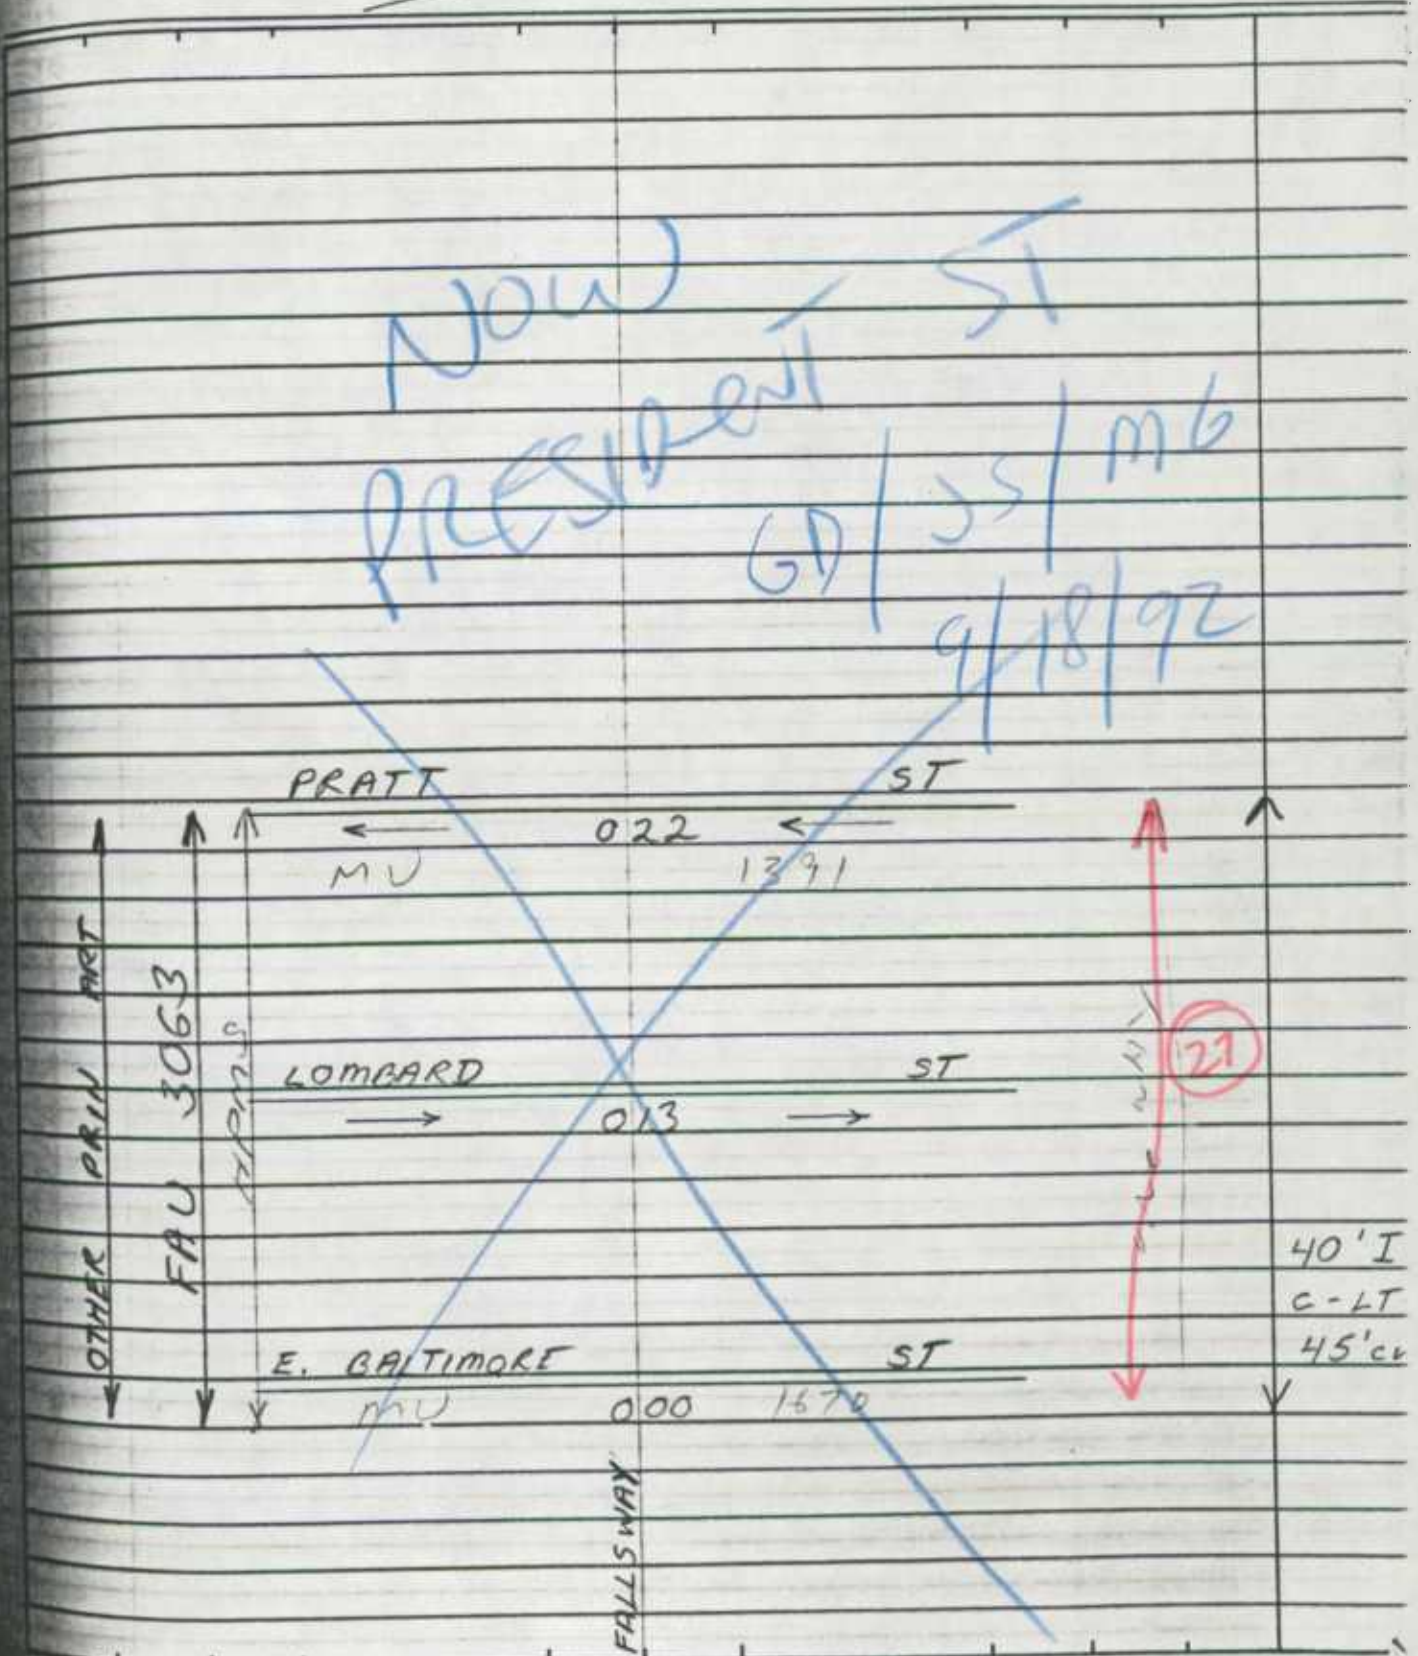 NOW
PRESIDENT ST
GD / JS / MG
9/18/92
PRATT ST
022
MU 1391
OTHER PRIN ART
FAU 3063
HPMS
LOMBARD ST
013
21
40' I
C-LT
45'
E. BALTIMORE ST
MU 000 1670
FALLSWAY